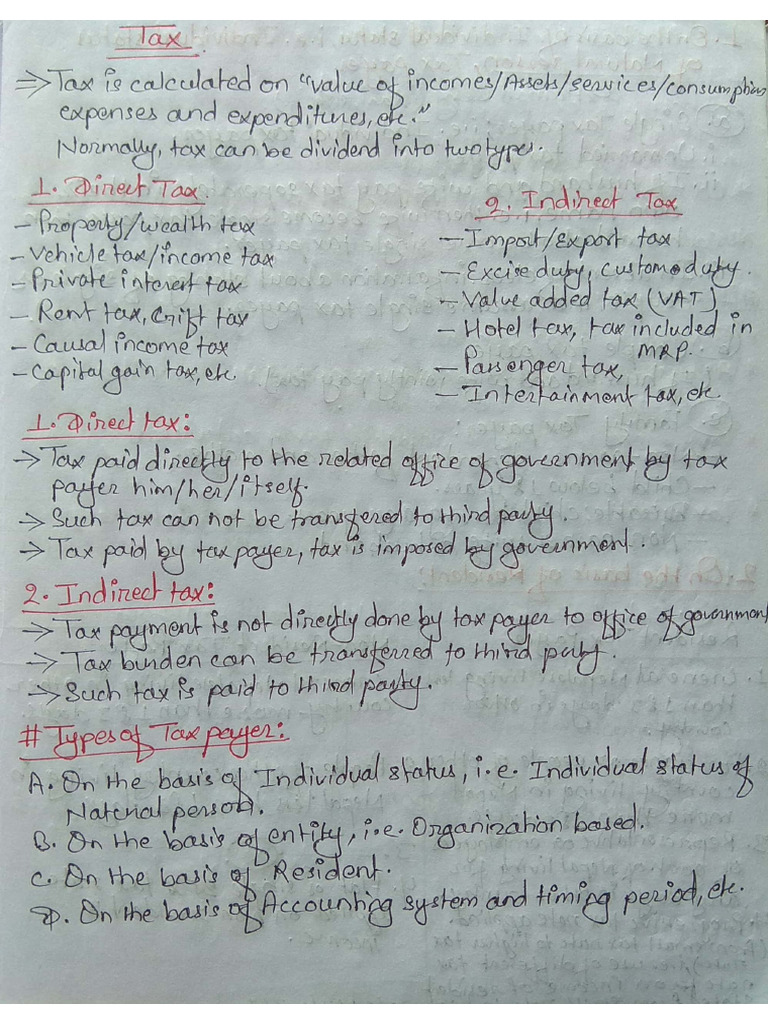 Tax
⇒ Tax is calculated on "value of incomes/Assets/services/consumption
expenses and expenditures, etc."
Normally, tax can be dividend into two type.
1. Direct Tax
- Property/wealth tax
- Vehicle tax/income tax
- Private interest tax
- Rent tax, Gift tax
- Causal income tax
- Capital gain tax, etc.
2. Indirect Tax
- Import/Export tax
- Excise duty, custom duty.
- Value added tax (VAT)
- Hotel tax, tax included in
MRP.
- Passenger tax,
- Intertainment tax, etc.
1. Direct tax:
→ Tax paid directly to the related office of government by tax
payer him/her/itself.
→ Such tax can not be transferred to third party.
→ Tax paid by tax payer, tax is imposed by government.
2. Indirect tax:
→ Tax payment is not directly done by tax payer to office of government
→ Tax burden can be transferred to third party.
→ Such tax is paid to third party.
# Types of Tax payer:
A. On the basis of Individual status, i.e. Individual status of
Natural person.
B. On the basis of entity, i.e. Organization based.
C. On the basis of Resident.
D. On the basis of Accounting system and timing period, etc.